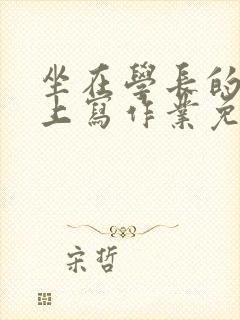 坐在學長的
上寫作業免
宋哲